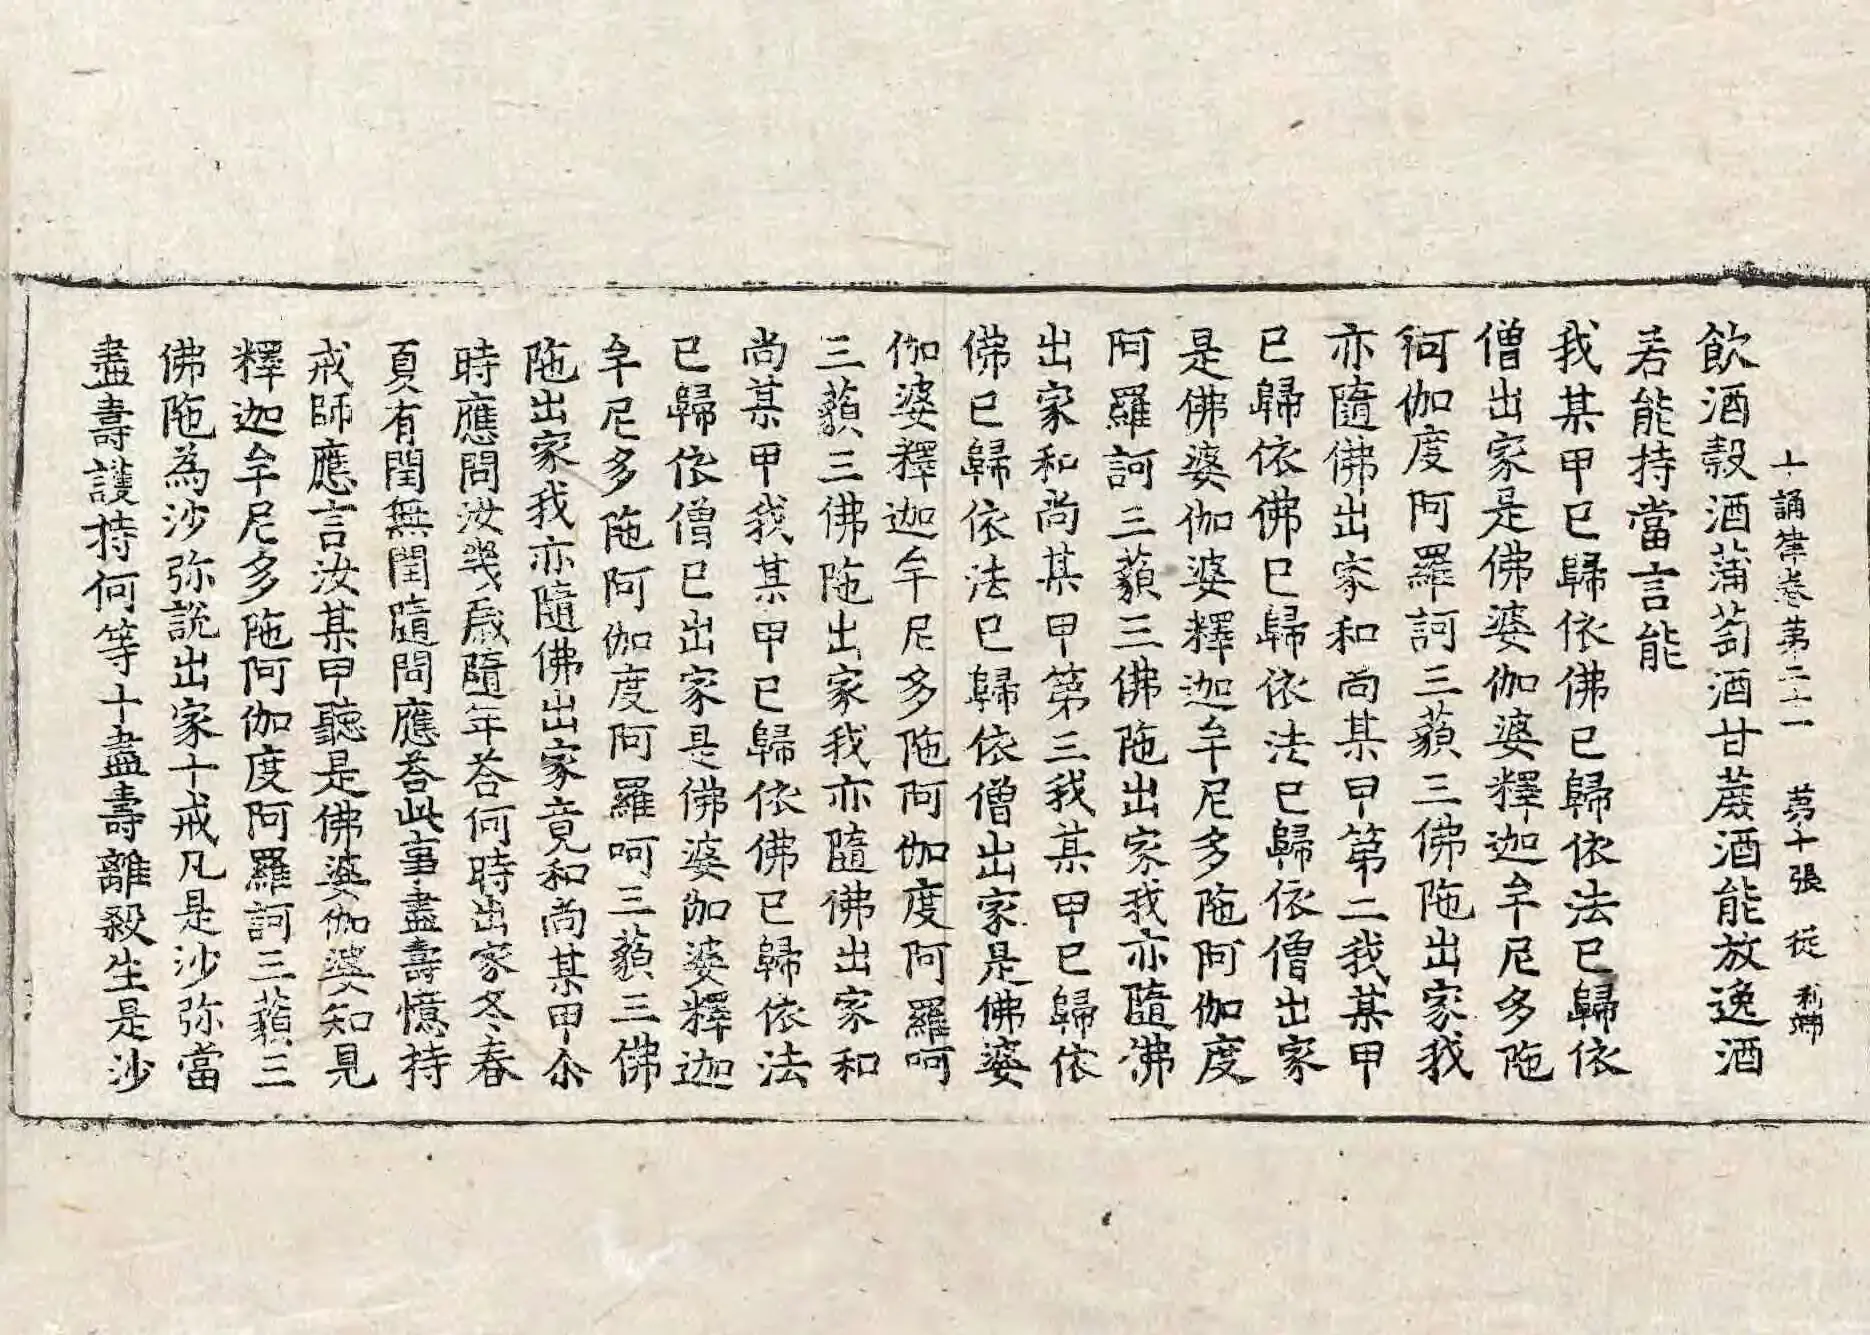 十誦律卷第二十一　第十張　從　利端
飲酒穀酒蒲萄酒甘蔗酒能放逸酒
若能持當言能
我某甲已歸依佛已歸依法已歸依
僧出家是佛婆伽婆釋迦牟尼多陁
阿伽度阿羅訶三藐三佛陁出家我
亦隨佛出家和尚某甲第二我某甲
已歸依佛已歸依法已歸依僧出家
是佛婆伽婆釋迦牟尼多陁阿伽度
阿羅訶三藐三佛陁出家我亦隨佛
出家和尚某甲第三我某甲已歸依
佛已歸依法已歸依僧出家是佛婆
伽婆釋迦牟尼多陁阿伽度阿羅呵
三藐三佛陁出家我亦隨佛出家和
尚某甲我某甲已歸依佛已歸依法
已歸依僧已出家是佛婆伽婆釋迦
牟尼多陁阿伽度阿羅呵三藐三佛
陁出家我亦隨佛出家竟和尚某甲尒
時應問汝幾歲隨年荅何時出家冬春
夏有閏無閏隨問應荅此事盡壽憶持
戒師應言汝某甲聽是佛婆伽婆知見
釋迦牟尼多陁阿伽度阿羅訶三藐三
佛陁為沙弥說出家十戒凡是沙弥當
盡壽護持何等十盡壽離殺生是沙